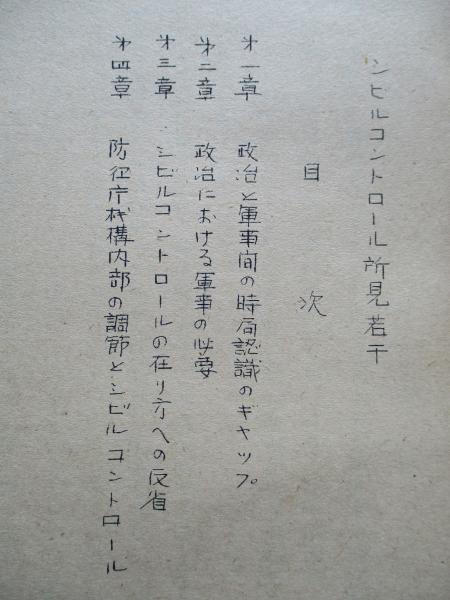 シビルコントロール所見若干
目次
第一章 政治と軍事間の時局認識のギャップ
第二章 政治における軍事の必要
第三章 シビルコントロールの在り方への反省
第四章 防衛庁机構内部の調節とシビルコントロール